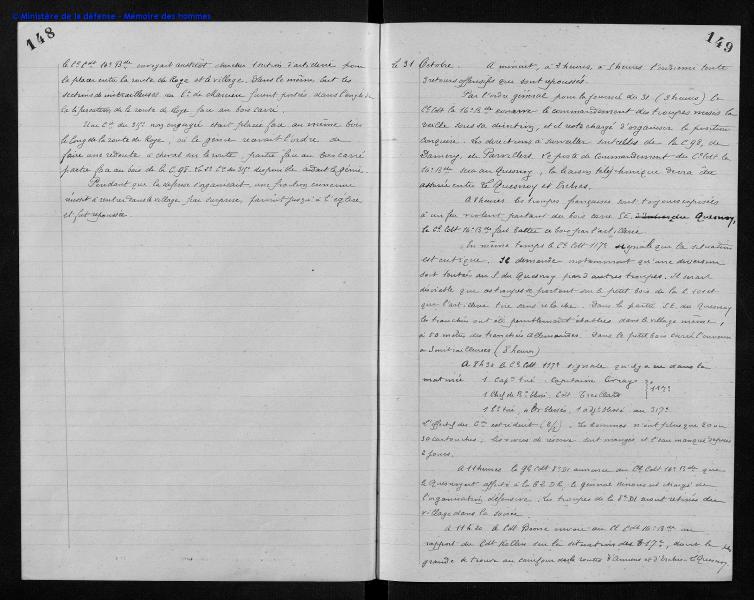 © Ministère de la défense - Mémoire des hommes
148
le Ct Cdt 16e Bde envoyait aussitôt chercher 1 section d'artillerie pour
la placer entre la route de Roye et le village. Dans le même but les
sections de mitrailleuses du furent postées dans l'angle de
la de la route de Roye face au bois carré.
Une Cie du 317e non engagée était placée face au même bois
le long de la route de Roye, où le génie recevait l'ordre de
faire une redoute à cheval sur la route, partie face au bois carré
partie face au bois de la C 98. du 317 aidant le génie.
Pendant que la défense s'organisait, une fraction ennemie
réussit à rentrer dans le village par surprise, parvint jusqu'à l'église
et fut repoussée.
149
le 31 Octobre. A minuit, à 3 heures, à 5 heures l'ennemi tente
3 retours offensifs qui sont repoussés.
Par l'ordre général pour la journée du 31 (3 heures) le
Ct Cdt la 16e Bde conserve le commandement des troupes mises la
veille sous sa direction, et il reste chargé d'organiser la position
conquise. Les directions à surveiller sont celles de la C 98, de
Damery, de Parvillers. Le poste de Commandement du Ct Cdt la
16e Bde sera au Quesnoy, la liaison téléphonique devra être
assurée entre le Quesnoy et Erches.
A heures les troupes françaises sont toujours exposées
à un feu violent partant du bois carré St. Quesnoy,
le Ct Cdt 16e Bde fait battre ce bois par l'artillerie
En même temps le Ct Cdt 117e signale que la situation
est critique. Il demande notamment qu'une diversion
soit tentée au du Quesnoy par d'autres troupes. Il serait
désirable que ces troupes se portent sur le petit bois de la
que l'artillerie tire sans relâche. Dans la partie S.E. du Quesnoy
les tranchées ont été péniblement établies dans le village même,
à 50 mètres des tranchées Allemandes. Dans le petit bois carré l'ennemi
a 3 mitrailleuses (8 heures)
A 8h30 le Ct Cdt 117e signale qu'il y a eu dans la
matinée 1 Capne tué, Capitaine
1 Chef de Bon blessé, Cdt } 117e
1 Lt tué, blessés, 1 adjt blessé au 317e
L'effectif des Cies est réduit Les hommes n'ont plus que 20 ou
30 cartouches; les vivres de réserve sont mangés et l'eau manque depuis
2 jours.
A 11 heures le Gl Cdt 8e DI annonce au Ct Cdt 16e Bde que
le Quesnoy est affecté à la 62 DR, le général est chargé de
l'organisation défensive. Les troupes de la 8e DI seront retirées du
village dans la soirée.
A 11h20 le Cdt envoie au Ct Cdt 16e Bde un
rapport du Cdt sur la situation des 317e, dont la plus
grande se trouve au carrefour de la route d'Amiens et d'Erches - Quesnoy